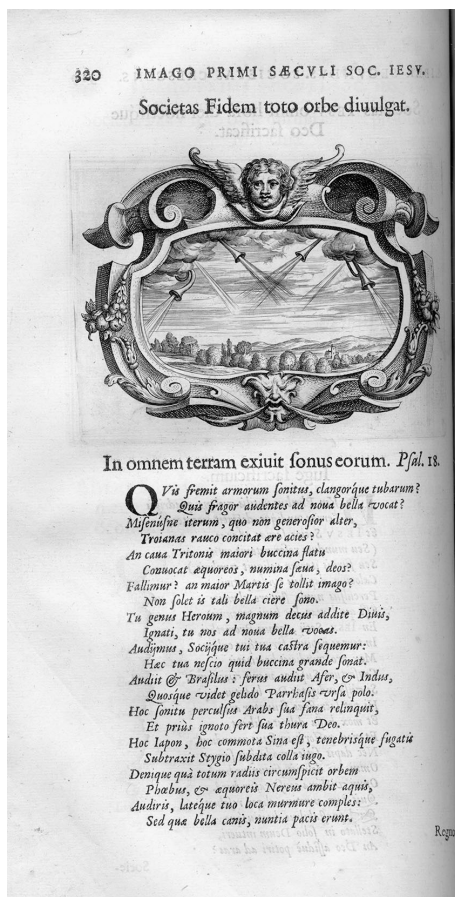 320 IMAGO PRIMI SÆCVLI SOC. IESV.
Societas Fidem toto orbe diuulgat.
In omnem terram exiuit sonus eorum. Psal. 18.
QVis fremit armorum sonitus, clangorque tubarum?
Quis fragor audentes ad noua bella vocat?
Misenusne iterum, quo non generosior alter,
Troianas rauco concitat ære acies?
An caua Tritonis maiori buccina flatu
Conuocat æquoreos, numina sæua, deos?
Fallimur? an maior Martis se tollit imago?
Non solet is tali bella ciere sono.
Tu genus Heroum, magnum decus addite Diuis,
Ignati, tu nos ad noua bella vocas.
Audimus, Sociique tui tua castra sequemur:
Hæc tua nescio quid buccina grande sonat.
Audiit & Brasilus: ferus audiit Afer, & Indus,
Quosque videt gelido Parrhasis vrsa polo.
Hoc sonitu perculsus Arabs sua fana relinquit,
Et priùs ignoto fert sua thura Deo.
Hoc Iapon, hoc commota Sina est, tenebrisque fugatis
Subtraxit Stygio subdita colla iugo.
Denique quà totum radiis circumspicit orbem
Phœbus, & æquoreis Nereus ambit aquis,
Audiris, latéque tuo loca murmure comples:
Sed quæ bella canis, nuntia pacis erunt.
Regno